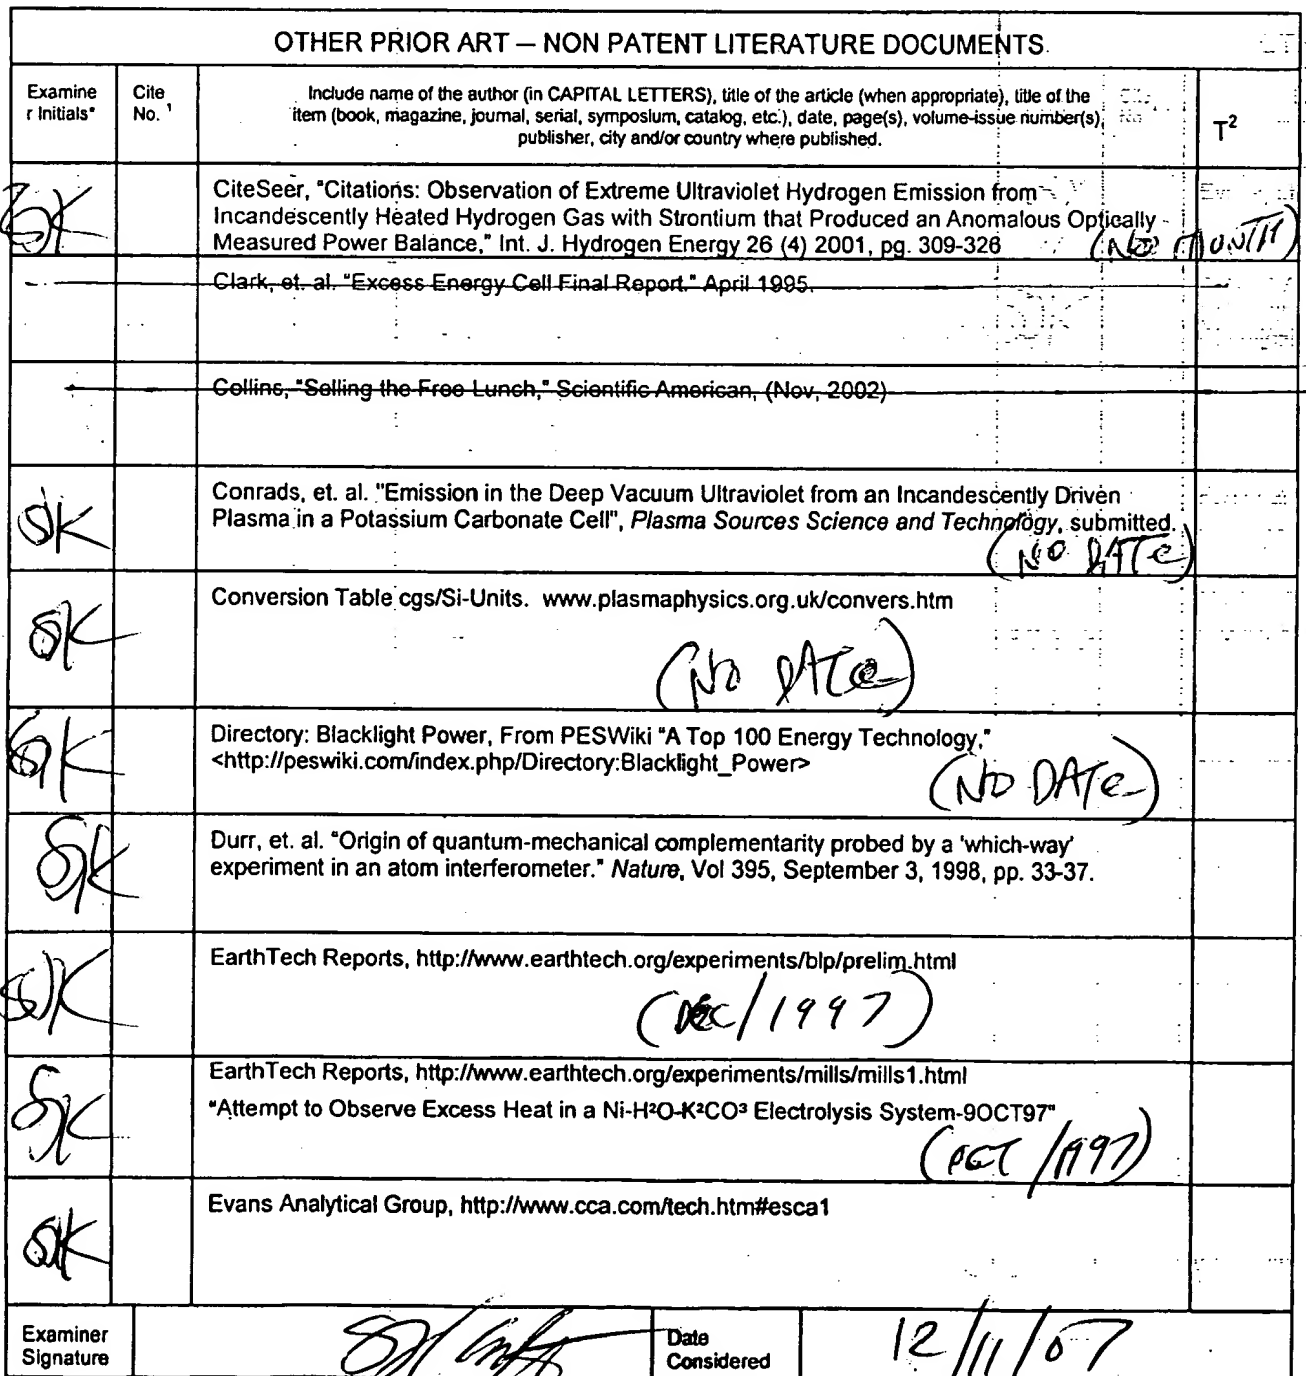 OTHER PRIOR ART — NON PATENT LITERATURE DOCUMENTS
Examine
r Initials*
Cite
No. ¹
Include name of the author (in CAPITAL LETTERS), title of the article (when appropriate), title of the
item (book, magazine, journal, serial, symposium, catalog, etc.), date, page(s), volume-issue number(s),
publisher, city and/or country where published.
T²
SK
CiteSeer, "Citations: Observation of Extreme Ultraviolet Hydrogen Emission from
Incandescently Heated Hydrogen Gas with Strontium that Produced an Anomalous Optically
Measured Power Balance," Int. J. Hydrogen Energy 26 (4) 2001, pg. 309-326 (NO MONTH)
Clark, et. al. "Excess Energy Cell Final Report." April 1995.
Collins, "Selling the Free Lunch," Scientific American, (Nov, 2002)
SK
Conrads, et. al. "Emission in the Deep Vacuum Ultraviolet from an Incandescently Driven
Plasma in a Potassium Carbonate Cell", Plasma Sources Science and Technology, submitted.
(NO DATE)
SK
Conversion Table cgs/Si-Units. www.plasmaphysics.org.uk/convers.htm
(NO DATE)
SK
Directory: Blacklight Power, From PESWiki "A Top 100 Energy Technology,"
<http://peswiki.com/index.php/Directory:Blacklight_Power>
(NO DATE)
SK
Durr, et. al. "Origin of quantum-mechanical complementarity probed by a 'which-way'
experiment in an atom interferometer." Nature, Vol 395, September 3, 1998, pp. 33-37.
SK
EarthTech Reports, http://www.earthtech.org/experiments/blp/prelim.html
(DEC/1997)
SK
EarthTech Reports, http://www.earthtech.org/experiments/mills/mills1.html
"Attempt to Observe Excess Heat in a Ni-H²O-K²CO³ Electrolysis System-9OCT97"
(OCT/1997)
SK
Evans Analytical Group, http://www.cca.com/tech.htm#esca1
Examiner
Signature
Date
Considered
12/11/07